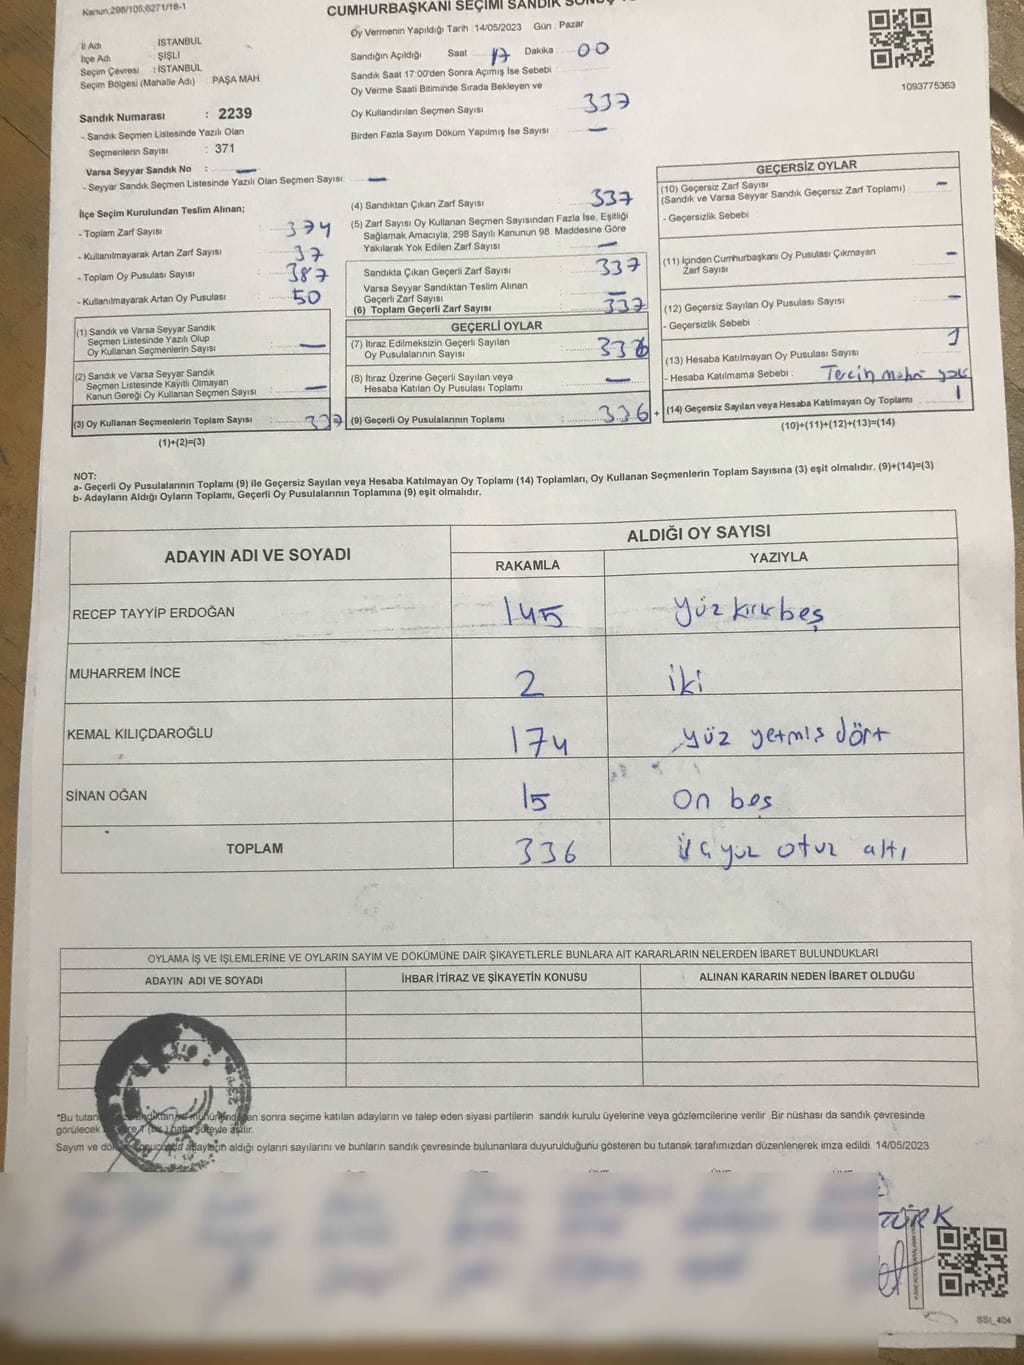 Kanun,298/105,6271/18-1
CUMHURBAŞKANI SEÇİMİ SANDIK
Oy Vermenin Yapıldığı Tarih : 14/05/2023 Gün : Pazar
İl Adı İSTANBUL
İlçe Adı : ŞİŞLİ
Seçim Çevresi : İSTANBUL
Seçim Bölgesi (Mahalle Adı) PAŞA MAH.
Sandığın Açıldığı Saat 17 Dakika 00
Sandık Saat 17:00'den Sonra Açımış İse Sebebi
Oy Verme Saati Bitiminde Sırada Bekleyen ve
Oy Kullandırılan Seçmen Sayısı 337
Birden Fazla Sayım Döküm Yapılmış İse Sayısı —
1093775363
Sandık Numarası : 2239
- Sandık Seçmen Listesinde Yazılı Olan
Seçmenlerin Sayısı : 371
Varsa Seyyar Sandık No : —
- Seyyar Sandık Seçmen Listesinde Yazılı Olan Seçmen Sayısı: —
İlçe Seçim Kurulundan Teslim Alınan;
- Toplam Zarf Sayısı : 374
- Kullanılmayarak Artan Zarf Sayısı : 37
- Toplam Oy Pusulası Sayısı : 387
- Kullanılmayarak Artan Oy Pusulası : 50
(1) Sandık ve Varsa Seyyar Sandık
Seçmen Listesinde Yazılı Olup
Oy Kullanan Seçmenlerin Sayısı : —
(2) Sandık ve Varsa Seyyar Sandık
Seçmen Listesinde Kayıtlı Olmayan
Kanun Gereği Oy Kullanan Seçmen Sayısı : —
(3) Oy Kullanan Seçmenlerin Toplam Sayısı : 337
(1)+(2)=(3)
(4) Sandıktan Çıkan Zarf Sayısı : 337
(5) Zarf Sayısı Oy Kullanan Seçmen Sayısından Fazla İse, Eşitliği
Sağlamak Amacıyla, 298 Sayılı Kanunun 98. Maddesine Göre
Yakılarak Yok Edilen Zarf Sayısı : —
Sandıkta Çıkan Geçerli Zarf Sayısı : 337
Varsa Seyyar Sandıktan Teslim Alınan
Geçerli Zarf Sayısı : —
(6) Toplam Geçerli Zarf Sayısı : 337
GEÇERLİ OYLAR
(7) İtiraz Edilmeksizin Geçerli Sayılan
Oy Pusulalarının Sayısı : 336
(8) İtiraz Üzerine Geçerli Sayılan veya
Hesaba Katılan Oy Pusulası Toplamı : —
(9) Geçerli Oy Pusulalarının Toplamı : 336 +
GEÇERSİZ OYLAR
(10) Geçersiz Zarf Sayısı
(Sandık ve Varsa Seyyar Sandık Geçersiz Zarf Toplamı) : —
- Geçersizlik Sebebi :
(11) İçinden Cumhurbaşkanı Oy Pusulası Çıkmayan
Zarf Sayısı : —
(12) Geçersiz Sayılan Oy Pusulası Sayısı : —
- Geçersizlik Sebebi :
(13) Hesaba Katılmayan Oy Pusulası Sayısı : 1
- Hesaba Katılmama Sebebi : Tercih mührü yok
(14) Geçersiz Sayılan veya Hesaba Katılmayan Oy Toplamı : 1
(10)+(11)+(12)+(13)=(14)
NOT:
a- Geçerli Oy Pusulalarının Toplamı (9) ile Geçersiz Sayılan veya Hesaba Katılmayan Oy Toplamı (14) Toplamları, Oy Kullanan Seçmenlerin Toplam Sayısına (3) eşit olmalıdır. (9)+(14)=(3)
b- Adayların Aldığı Oyların Toplamı, Geçerli Oy Pusulalarının Toplamına (9) eşit olmalıdır.
ADAYIN ADI VE SOYADI ALDIĞI OY SAYISI
RAKAMLA YAZIYLA
RECEP TAYYİP ERDOĞAN 145 yüz kırk beş
MUHARREM İNCE 2 iki
KEMAL KILIÇDAROĞLU 174 yüz yetmiş dört
SİNAN OĞAN 15 On beş
TOPLAM 336 üç yüz otuz altı
OYLAMA İŞ VE İŞLEMLERİNE VE OYLARIN SAYIM VE DÖKÜMÜNE DAİR ŞİKAYETLERLE BUNLARA AİT KARARLARIN NELERDEN İBARET BULUNDUKLARI
ADAYIN ADI VE SOYADI İHBAR İTİRAZ VE ŞİKAYETİN KONUSU ALINAN KARARIN NEDEN İBARET OLDUĞU
*Bu tutan sonra seçime katılan adayların ve talep eden siyasi partilerin sandık kurulu üyelerine veya gözlemcilerine verilir. Bir nüshası da sandık çevresinde
görülecek süreyle asılır.
Sayım ve adayların aldığı oyların sayılarını ve bunların sandık çevresinde bulunanlara duyurulduğunu gösteren bu tutanak tarafımızdan düzenlenerek imza edildi. 14/05/2023
TÜRK
SSI_404